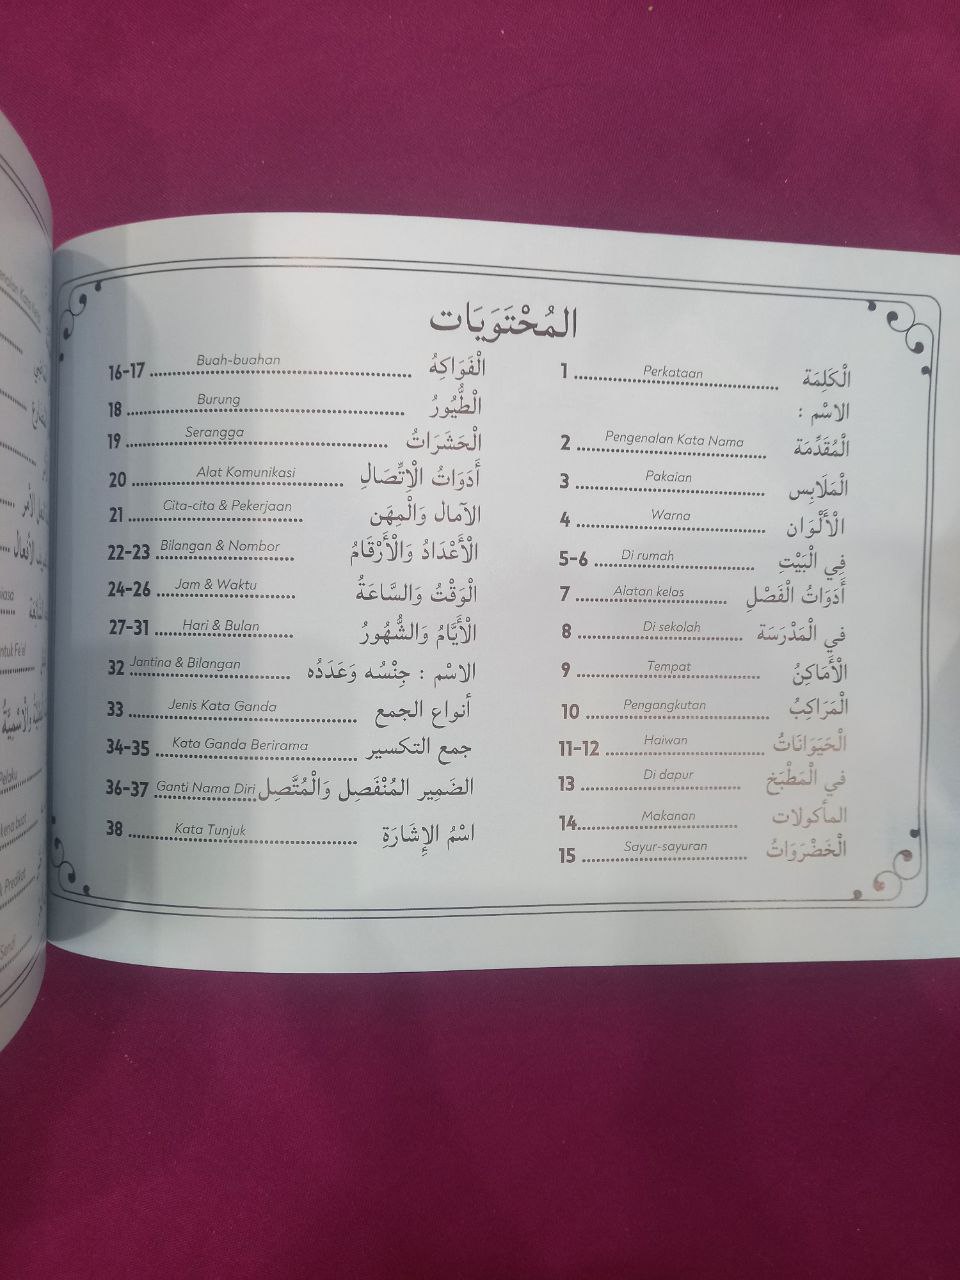 المُحْتَوَيَات
الْكَلِمَة Perkataan 1
الاسْم :
الْمُقَدِّمَة Pengenalan Kata Nama 2
الْمَلَابِس Pakaian 3
الْأَلْوَان Warna 4
فِي الْبَيْتِ Di rumah 5-6
أَدَوَاتُ الْفَصْلِ Alatan kelas 7
في الْمَدْرَسَة Di sekolah 8
الْأَمَاكِنُ Tempat 9
الْمَرَاكِبُ Pengangkutan 10
الْحَيَوَانَاتُ Haiwan 11-12
في الْمَطْبَخِ Di dapur 13
المأكولات Makanan 14
الْخَضْرَوَاتُ Sayur-sayuran 15
الْفَوَاكِهُ Buah-buahan 16-17
الْطُّيُورُ Burung 18
الْحَشَرَاتُ Serangga 19
أَدَوَاتُ الْاِتِّصَالِ Alat Komunikasi 20
الآمال وَالْمِهَن Cita-cita & Pekerjaan 21
الْأَعْدَادُ وَالْأَرْقَامُ Bilangan & Nombor 22-23
الْوَقْتُ وَالسَّاعَةُ Jam & Waktu 24-26
الْأَيَّامُ وَالشُّهُورُ Hari & Bulan 27-31
الاسْم : جِنْسُه وَعَدَدُه Jantina & Bilangan 32
أنواع الجمع Jenis Kata Ganda 33
جمع التكسير Kata Ganda Berirama 34-35
الضَمِير المُنْفَصِل وَالْمُتَّصِل Ganti Nama Diri 36-37
اسْمُ الإِشَارَةِ Kata Tunjuk 38